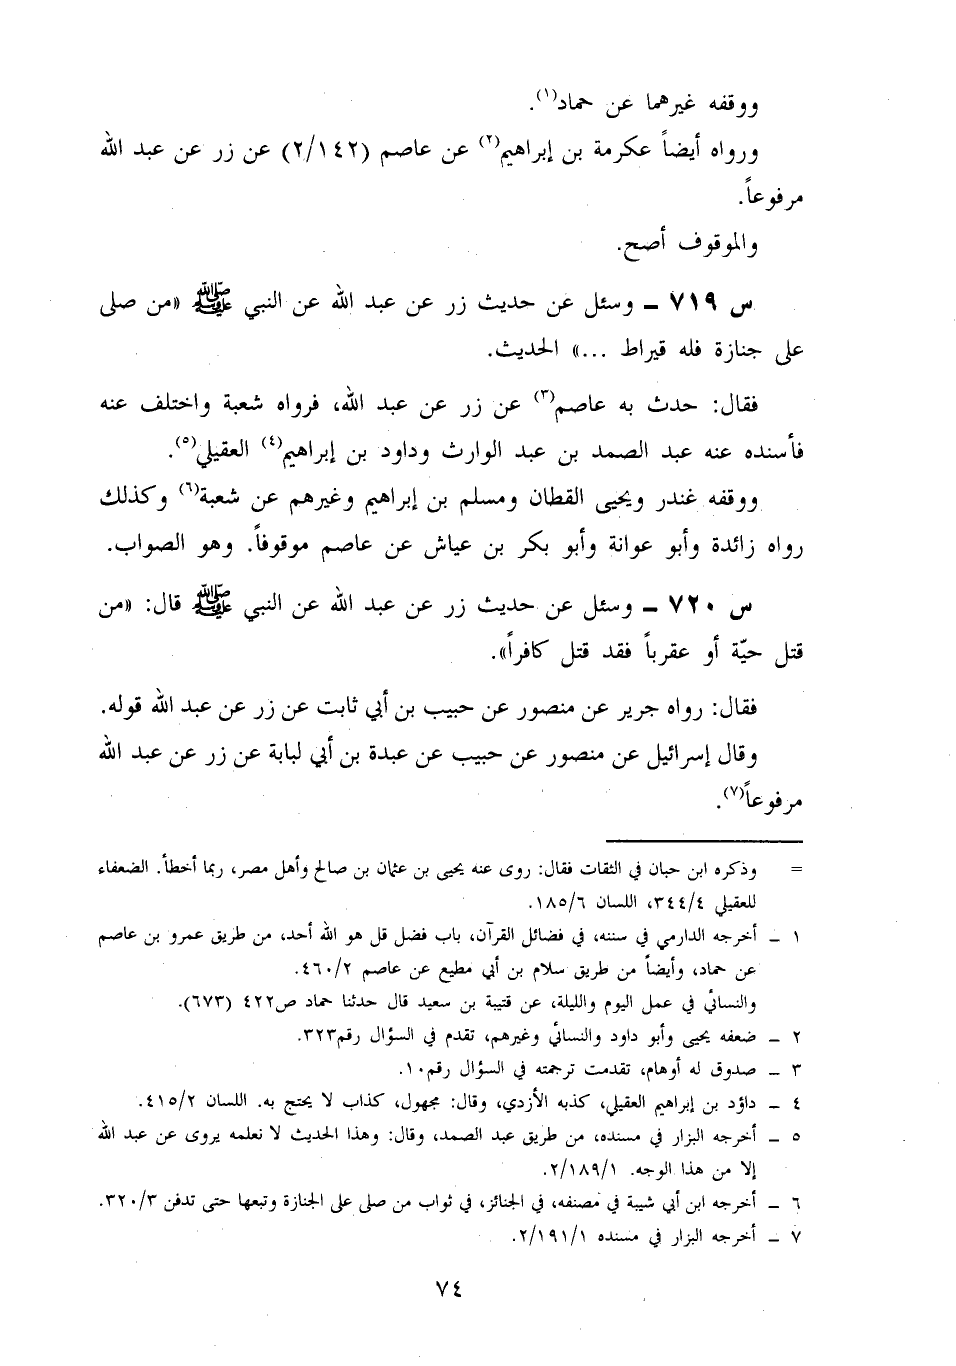 ووقفه غيرهما عن حماد(١).
ورواه أيضاً عكرمة بن إبراهيم(٢) عن عاصم (٢/١٤٢) عن زر عن عبد الله
مرفوعاً.
والموقوف أصح.
س ٧١٩ ـ وسئل عن حديث زر عن عبد الله عن النبي ﷺ «من صلى
على جنازة فله قيراط ...» الحديث.
فقال: حدث به عاصم(٣) عن زر عن عبد الله، فرواه شعبة واختلف عنه
فأسنده عنه عبد الصمد بن عبد الوارث وداود بن إبراهيم(٤) العقيلي(٥).
ووقفه غندر ويحيى القطان ومسلم بن إبراهيم وغيرهم عن شعبة(٦) وكذلك
رواه زائدة وأبو عوانة وأبو بكر بن عياش عن عاصم موقوفاً. وهو الصواب.
س ٧٢٠ ـ وسئل عن حديث زر عن عبد الله عن النبي ﷺ قال: «من
قتل حيّة أو عقرباً فقد قتل كافراً».
فقال: رواه جرير عن منصور عن حبيب بن أبي ثابت عن زر عن عبد الله قوله.
وقال إسرائيل عن منصور عن حبيب عن عبدة بن أبي لبابة عن زر عن عبد الله
مرفوعاً(٧).
= وذكره ابن حبان في الثقات فقال: روى عنه يحيى بن عثمان بن صالح وأهل مصر، ربما أخطأ. الضعفاء
للعقيلي ٣٤٤/٤، اللسان ١٨٥/٦.
١ ـ أخرجه الدارمي في سننه، في فضائل القرآن، باب فضل قل هو الله أحد، من طريق عمرو بن عاصم
عن حماد، وأيضاً من طريق سلام بن أبي مطيع عن عاصم ٤٦٠/٢.
والنسائي في عمل اليوم والليلة، عن قتيبة بن سعيد قال حدثنا حماد ص٤٢٢ (٦٧٣).
٢ ـ ضعفه يحيى وأبو داود والنسائي وغيرهم، تقدم في السؤال رقم٣٢٣.
٣ ـ صدوق له أوهام، تقدمت ترجمته في السؤال رقم١٠.
٤ ـ داؤد بن إبراهيم العقيلي، كذبه الأزدي، وقال: مجهول، كذاب لا يحتج به. اللسان ٤١٥/٢.
٥ ـ أخرجه البزار في مسنده، من طريق عبد الصمد، وقال: وهذا الحديث لا نعلمه يروى عن عبد الله
إلا من هذا الوجه. ٢/١٨٩/١.
٦ ـ أخرجه ابن أبي شيبة في مصنفه، في الجنائز، في ثواب من صلى على الجنازة وتبعها حتى تدفن ٣٢٠/٣.
٧ ـ أخرجه البزار في مسنده ٢/١٩١/١.
٧٤